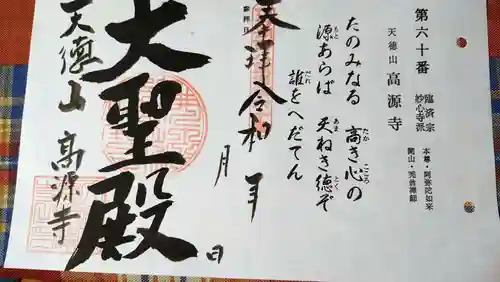 第六十番
臨済宗
妙心寺派
本尊・阿弥陀如来
開山・兀菴禅師
天徳山 高源寺
たのみなる 高き心の
たか こころ
源あらば 天ねき徳ぞ
もと あま とく
誰をへだてん
だれ
奉拝 令和 年 月 日
大聖殿
天徳山 高源寺